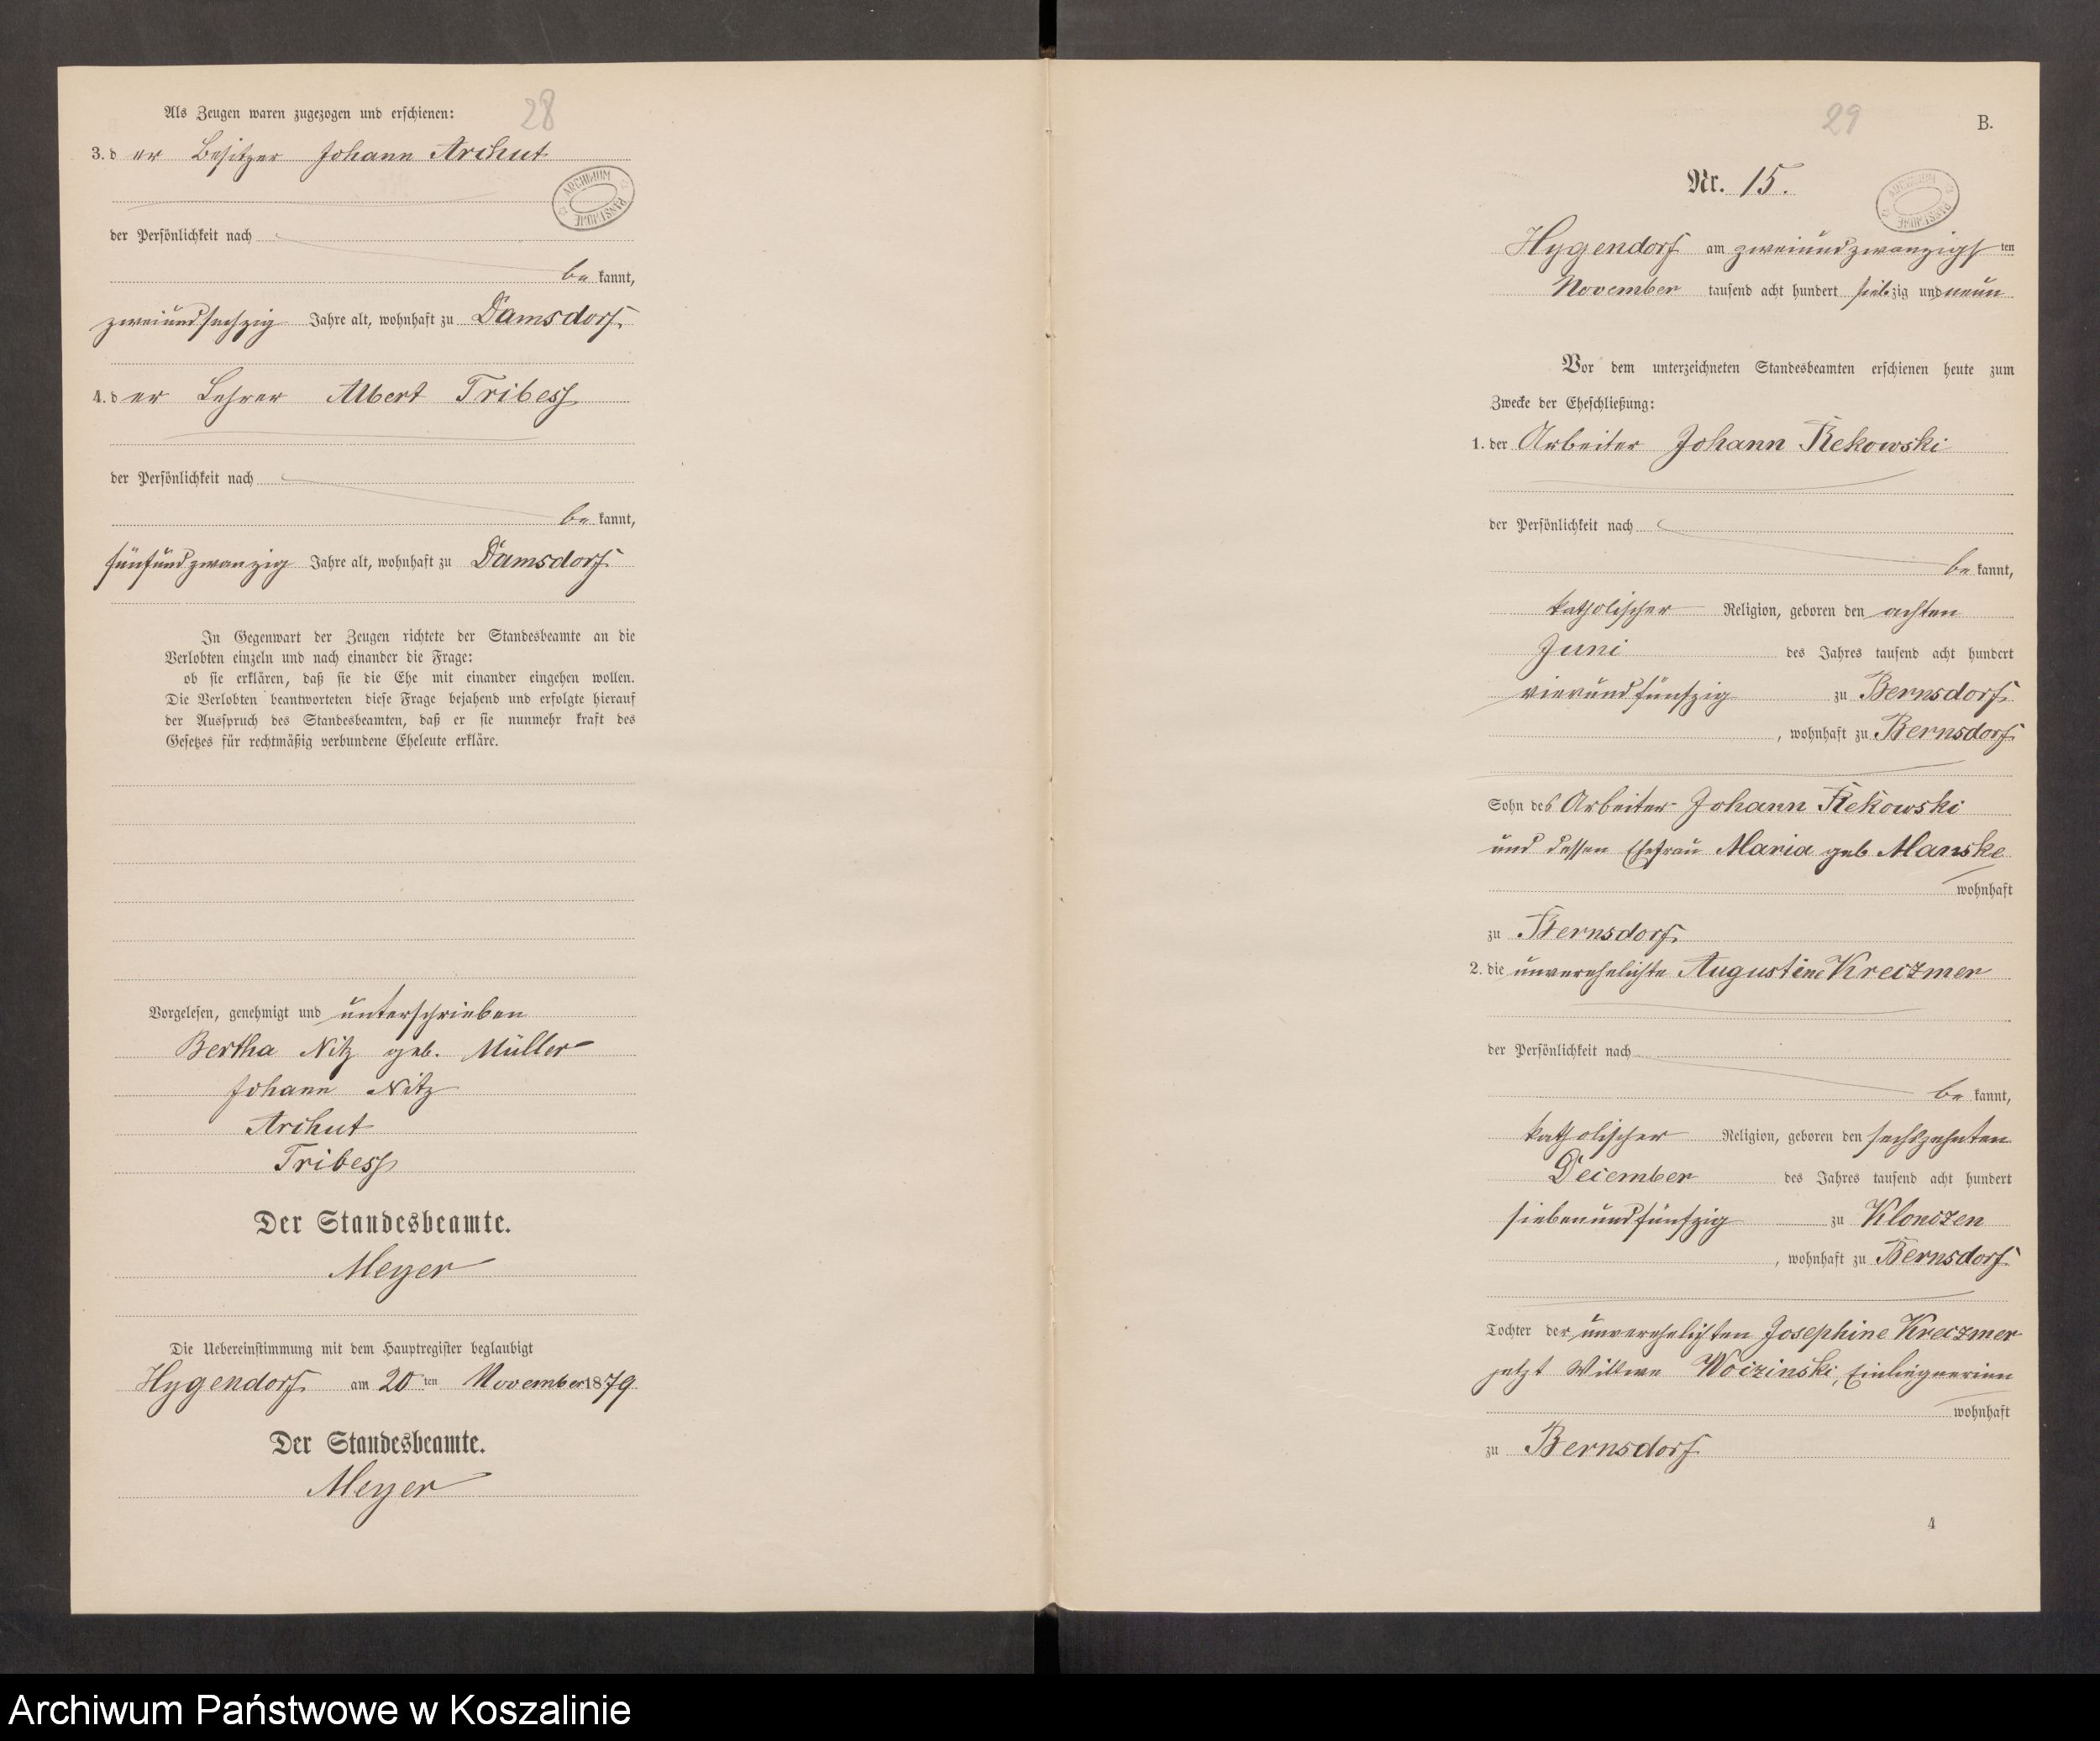 Als Zeugen waren zugezogen und erschienen:
28
3. der Besitzer Johann Archut
ARCHIWUM PAŃSTWOWE
der Persönlichkeit nach
bekannt,
zweiundsechzig Jahre alt, wohnhaft zu Damsdorf
4. der Lehrer Albert Tribess
der Persönlichkeit nach
bekannt,
fünfundzwanzig Jahre alt, wohnhaft zu Damsdorf
In Gegenwart der Zeugen richtete der Standesbeamte an die
Verlobten einzeln und nach einander die Frage:
ob sie erklären, daß sie die Ehe mit einander eingehen wollen.
Die Verlobten beantworteten diese Frage bejahend und erfolgte hierauf
der Ausspruch des Standesbeamten, daß er sie nunmehr kraft des
Gesetzes für rechtmäßig verbundene Eheleute erkläre.
Vorgelesen, genehmigt und unterschrieben
Bertha Nitz geb. Müller
Johann Nitz
Archut
Tribess
Der Standesbeamte.
Meyer
Die Uebereinstimmung mit dem Hauptregister beglaubigt
Hygendorf am 20ten November 1879
Der Standesbeamte.
Meyer
29
B.
Nr. 15.
ARCHIWUM PAŃSTWOWE
Hygendorf am zweiundzwanzigsten
November tausend acht hundert siebzig und neun
Vor dem unterzeichneten Standesbeamten erschienen heute zum
Zwecke der Eheschließung:
1. der Arbeiter Johann Rekowski
der Persönlichkeit nach
bekannt,
katholischer Religion, geboren den achten
Juni des Jahres tausend acht hundert
vierundfünfzig zu Bernsdorf
, wohnhaft zu Bernsdorf
Sohn des Arbeiter Johann Rekowski
und dessen Ehefrau Maria geb Manske
wohnhaft
zu Bernsdorf
2. die unverehelichte Augustine Kreczmer
der Persönlichkeit nach
bekannt,
katholischer Religion, geboren den sechszehnten
December des Jahres tausend acht hundert
siebenundfünfzig zu Klonczen
, wohnhaft zu Bernsdorf
Tochter der unverehelichten Josephine Kreczmer
jetzt Wittwe Woczinski, Einliegnerinn
wohnhaft
zu Bernsdorf
4
Archiwum Państwowe w Koszalinie